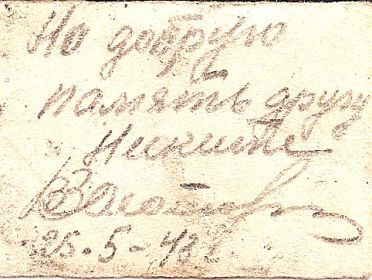 На добрую
память другу
Никите
25.5-43г